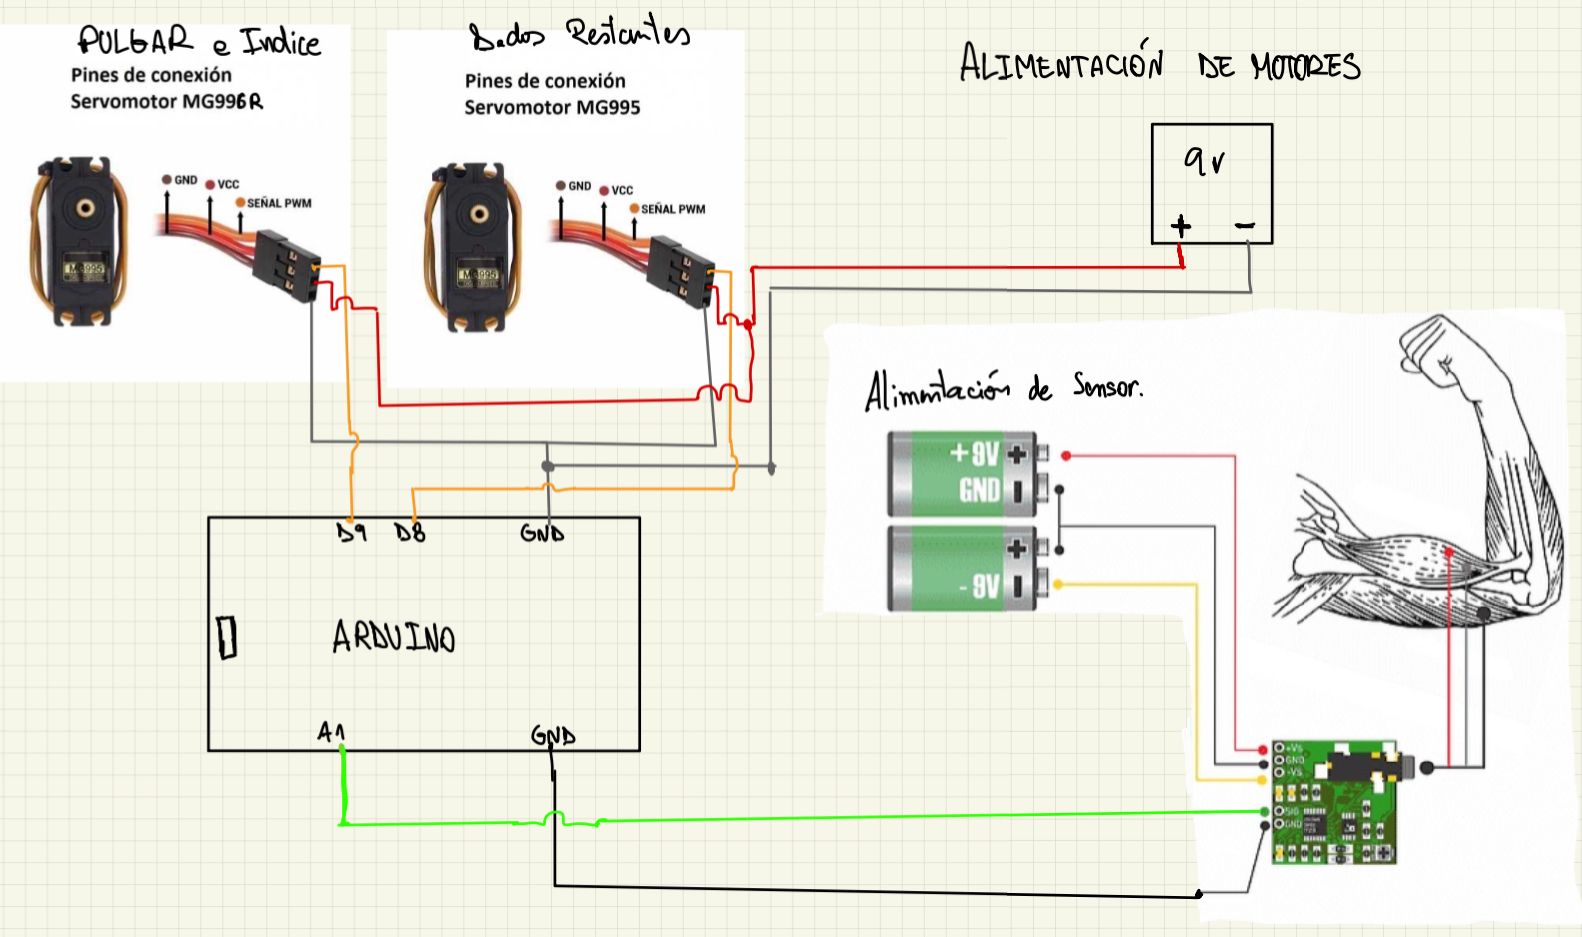 PULGAR e Indice
Pines de conexión
Servomotor MG996R
GND
VCC
SEÑAL PWM
MG995
Dedos Restantes
Pines de conexión
Servomotor MG995
GND
VCC
SEÑAL PWM
MG995
ALIMENTACIÓN DE MOTORES
9v
+ -
Alimentación de Sensor.
+9V +
GND -
+
-9V -
D9 D8 GND
ARDUINO
A1 GND
+Vs
GND
-VS
SIG
GND